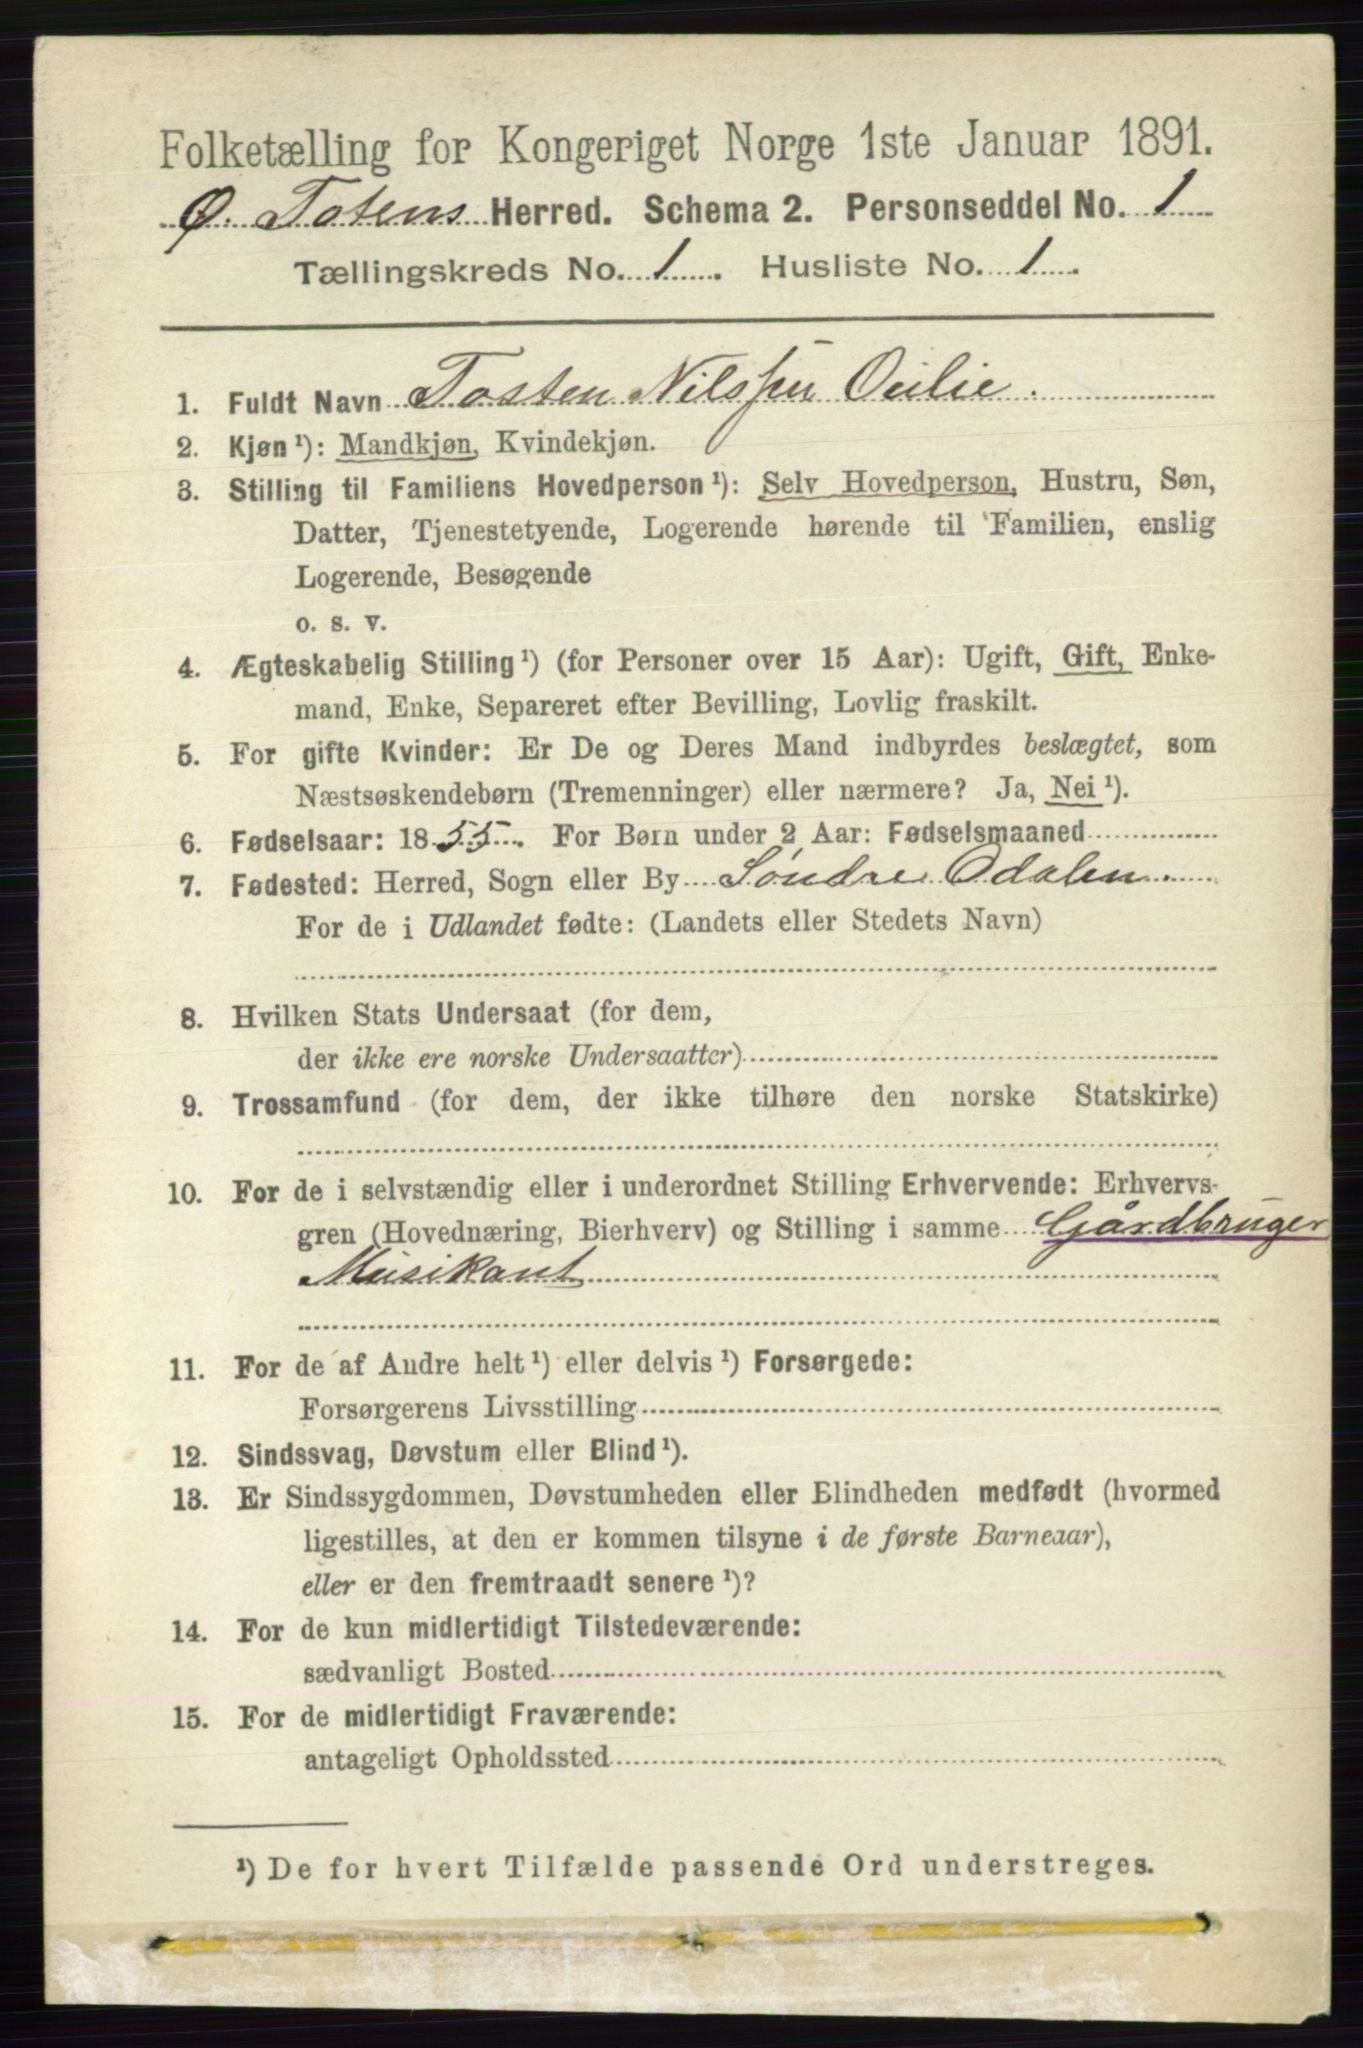 Folketælling for Kongeriget Norge 1ste Januar 1891.
Ø. Totens Herred. Schema 2. Personseddel No. 1
Tællingskreds No. 1. Husliste No. 1.
1. Fuldt Navn Tosten Nilssen
2. Kjøn ¹): Mandkjøn, Kvindekjøn.
3. Stilling til Familiens Hovedperson ¹): Selv Hovedperson, Hustru, Søn,
Datter, Tjenestetyende, Logerende hørende til Familien, enslig
Logerende, Besøgende
o. s. v.
4. Ægteskabelig Stilling ¹) (for Personer over 15 Aar): Ugift, Gift, Enke-
mand, Enke, Separeret efter Bevilling, Lovlig fraskilt.
5. For gifte Kvinder: Er De og Deres Mand indbyrdes beslægtet, som
Næstsøskendebørn (Tremenninger) eller nærmere? Ja, Nei ¹).
6. Fødselsaar: 1855. For Børn under 2 Aar: Fødselsmaaned
7. Fødested: Herred, Sogn eller By Søndre Odalen.
For de i Udlandet fødte: (Landets eller Stedets Navn)
8. Hvilken Stats Undersaat (for dem,
der ikke ere norske Undersaatter)
9. Trossamfund (for dem, der ikke tilhøre den norske Statskirke)
10. For de i selvstændig eller i underordnet Stilling Erhvervende: Erhvervs-
gren (Hovednæring, Bierhverv) og Stilling i samme Gårdbruger
Musikant
11. For de af Andre helt ¹) eller delvis ¹) Forsørgede:
Forsørgerens Livsstilling
12. Sindssvag, Døvstum eller Blind ¹).
13. Er Sindssygdommen, Døvstumheden eller Blindheden medfødt (hvormed
ligestilles, at den er kommen tilsyne i de første Barneaar),
eller er den fremtraadt senere ¹)?
14. For de kun midlertidigt Tilstedeværende:
sædvanligt Bosted
15. For de midlertidigt Fraværende:
antageligt Opholdssted
¹) De for hvert Tilfælde passende Ord understreges.